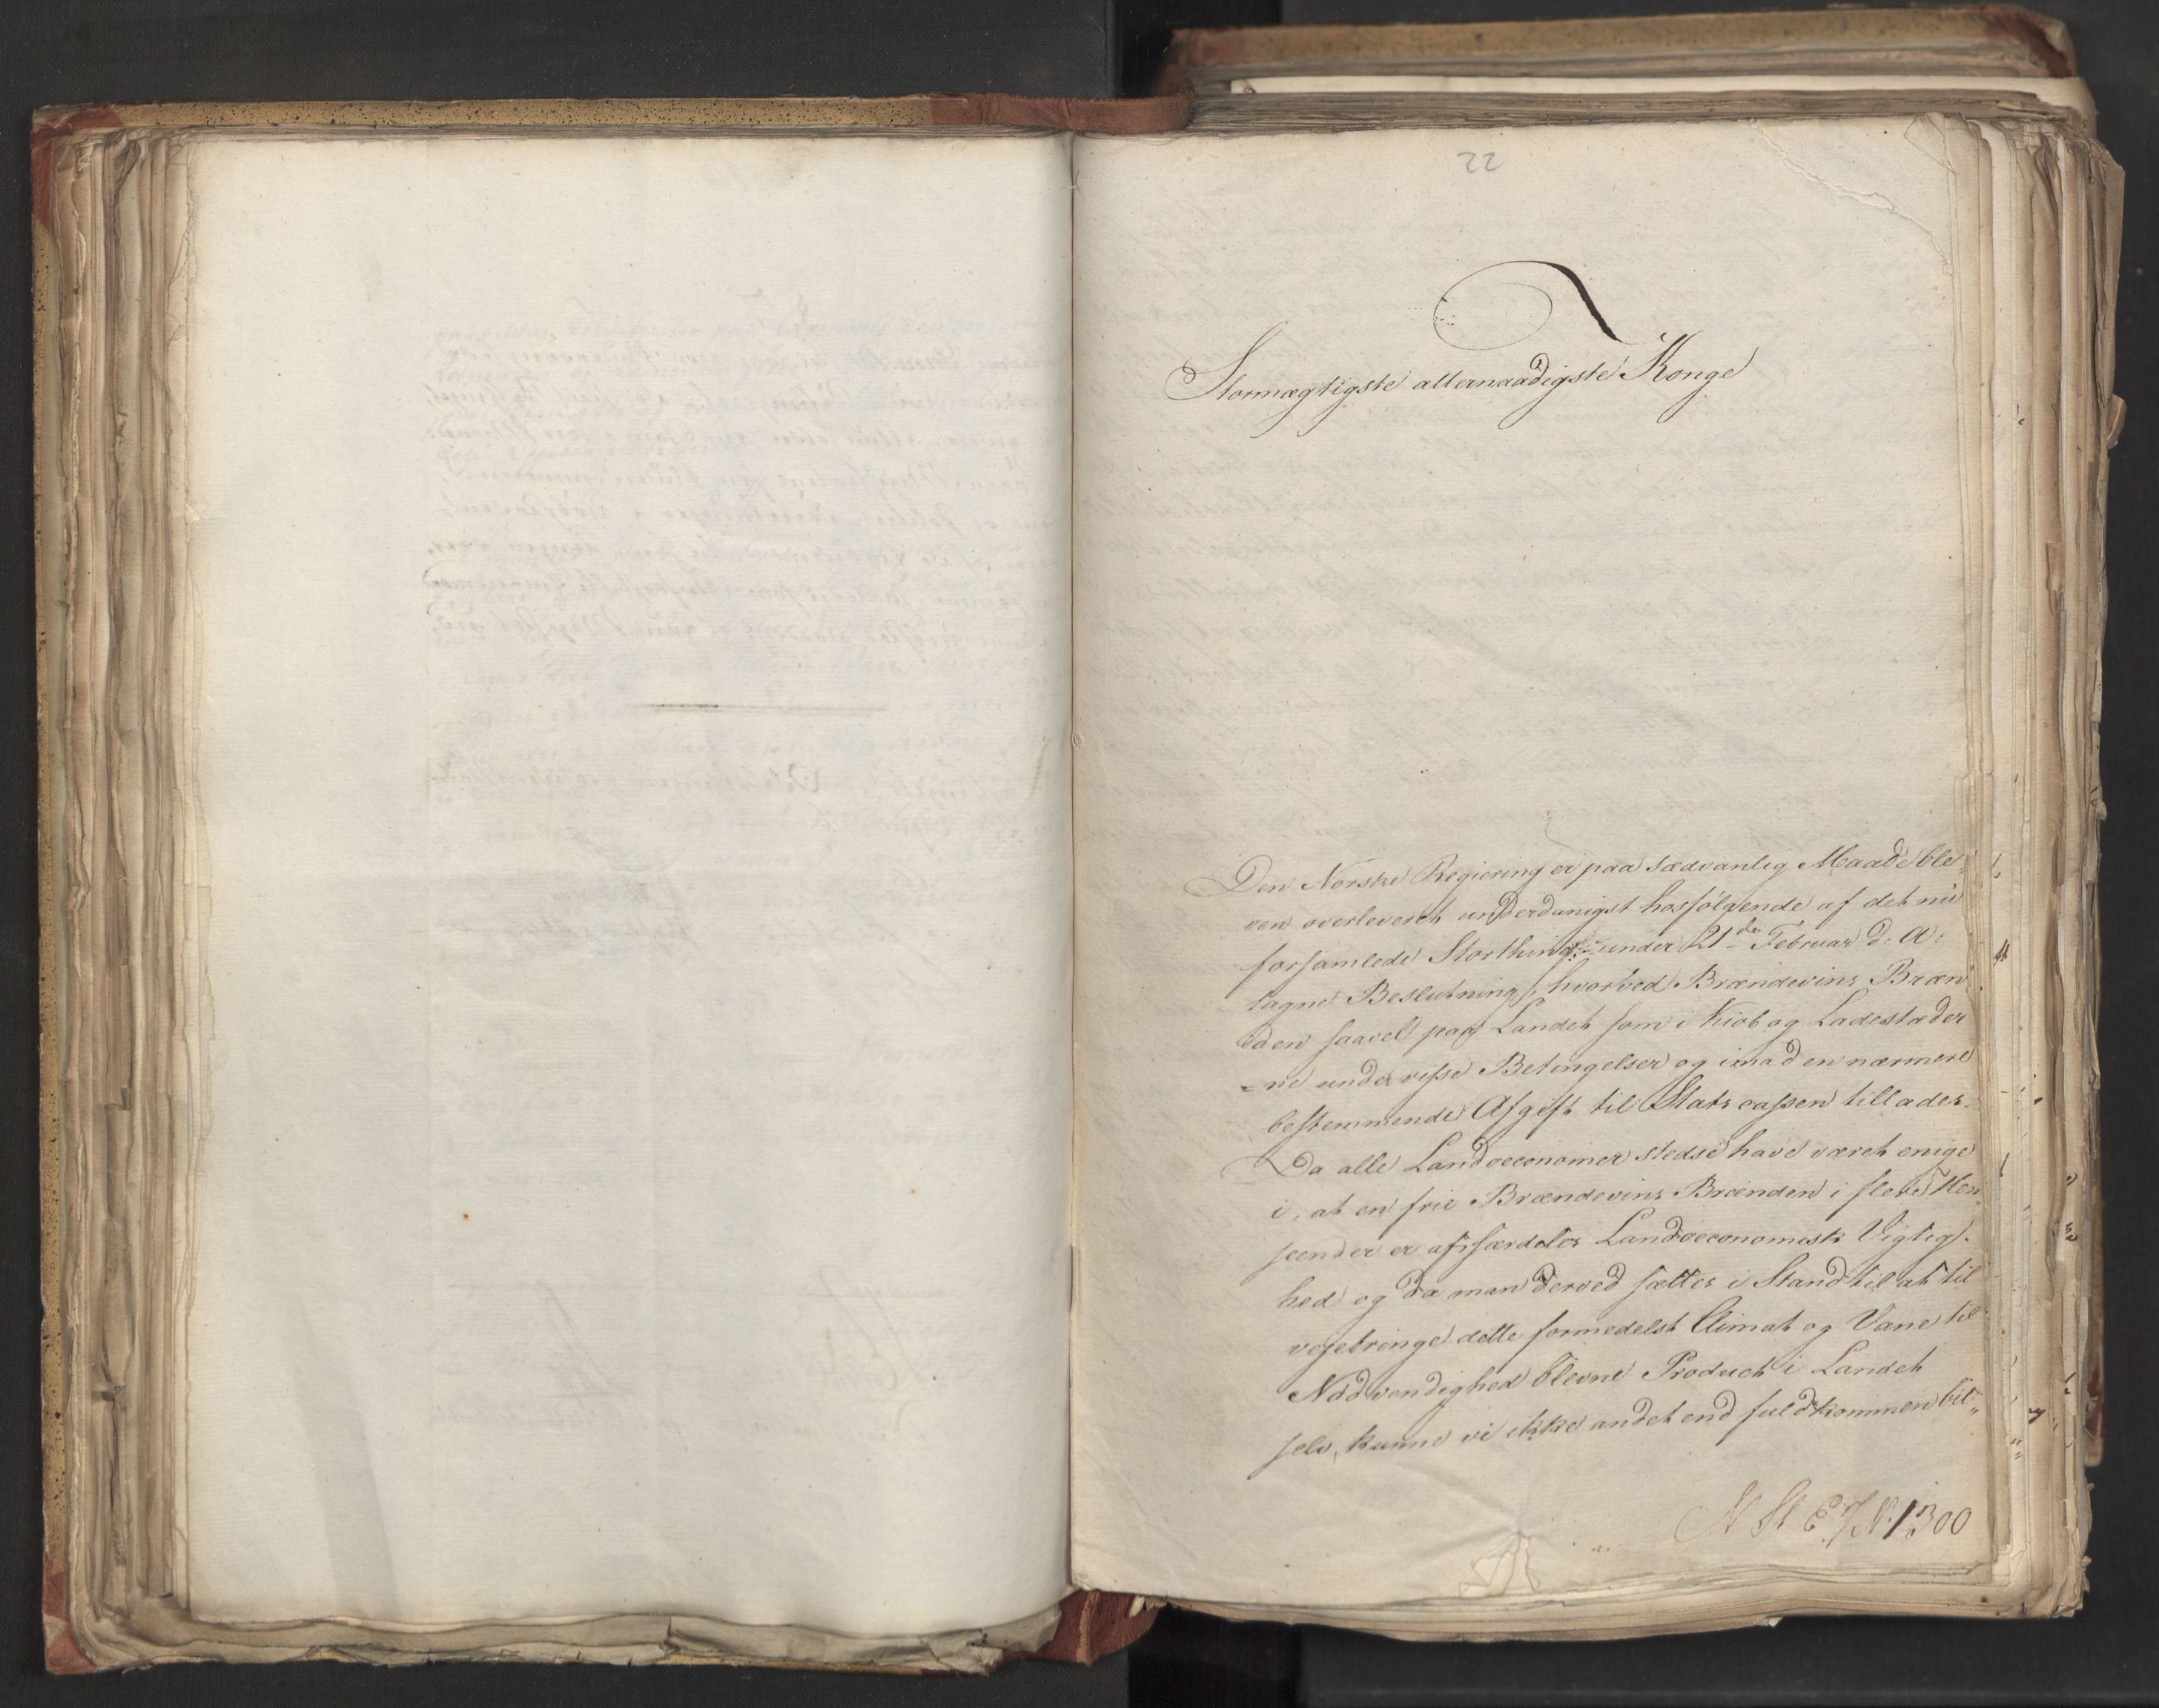 22
Stormægtigste allernaadigste Konge
Den Norske Regiering er paa sædvanlig Maade ble„
ven overleveret underdanigst hosfølgende af det nu
forsamlede Storthing under 21de Februar d: A:
tagne Beslutning, hvorved Brændevins Bræn„
den saavel paa Landet som i Kiøb og Ladestæder
=ne under visse Betingelser og imod en nærmere
bestemmende Afgift til Stats cassen tillades.
Da alle Landoeconomer stedse have været enige
i, at en frie Brændevins Brænden i flere Hen„
seender er af særdeles Landoeconomisk Vigtig„
hed og da man derved sættes i Stand til at til
vejebringe dette formedelst Climat og Vane til
Nødvendighed blevne Product i Landet
selv, kunne vi ikke andet end fuldkommen bil„
N. 1300